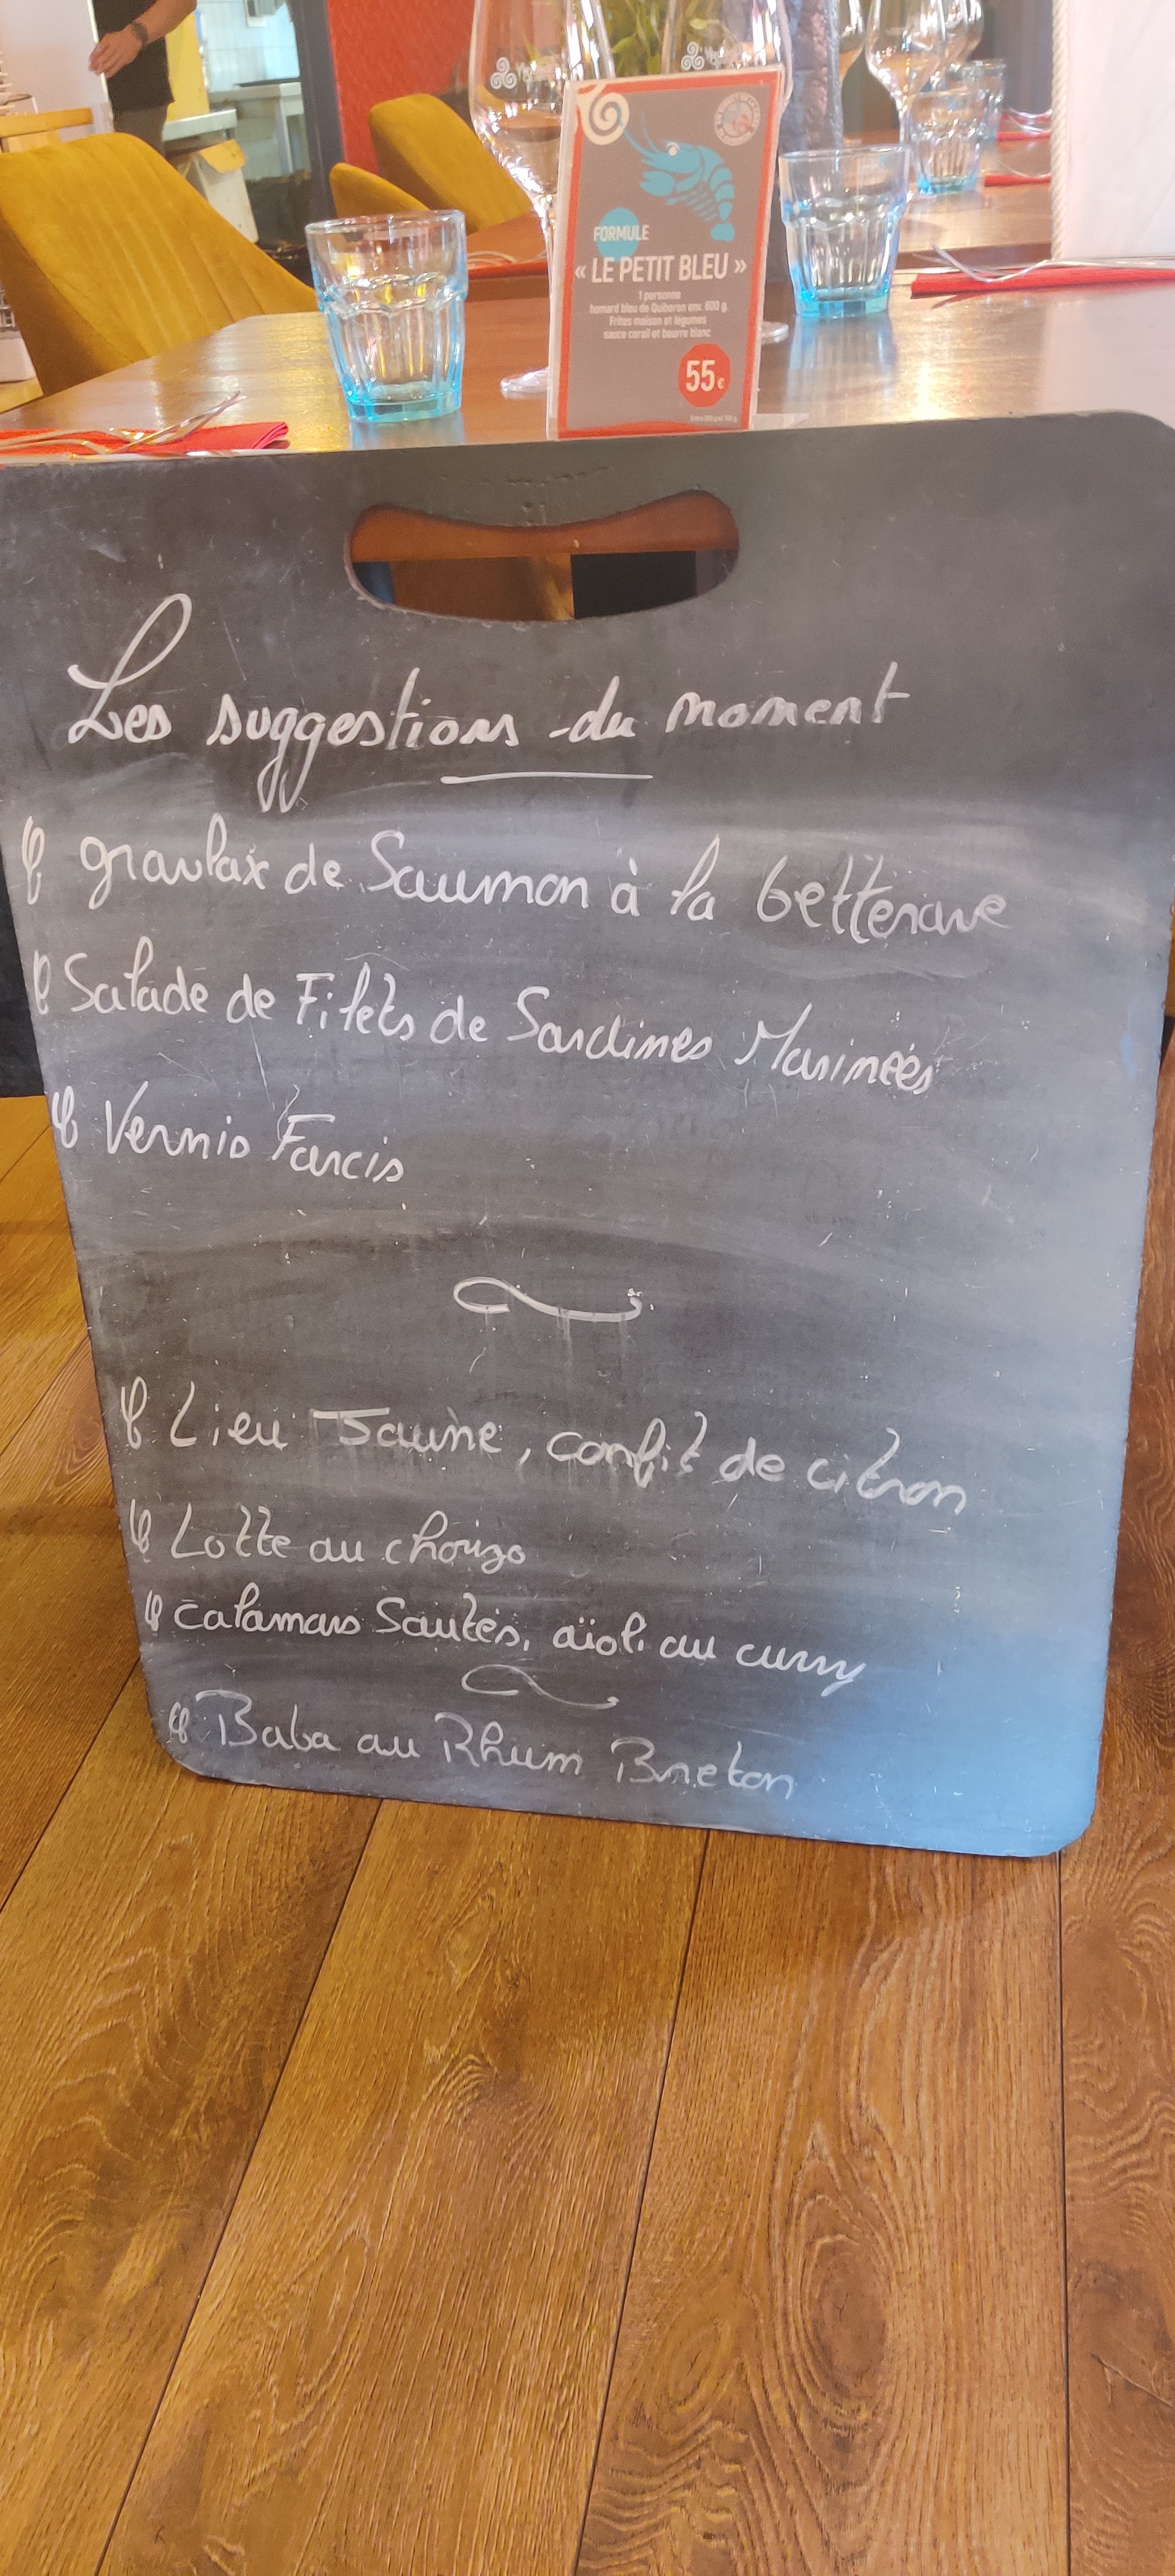 FORMULE
« LE PETIT BLEU »
1 personne
homard bleu de Quiberon env. 600 g.
Frites maison et légumes
sauce corail et beurre blanc
55€
Les suggestions du moment
gravlax de Saumon à la betterave
Salade de Filets de Sardines Marinées
Vernis Farcis
Lieu Jaune, confit de citron
Lotte au chorizo
calamars Sautés, aïoli au curry
Baba au Rhum Breton